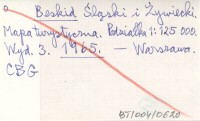 Beskid Śląski i Żywiecki.
Mapa turystyczna. Podziałka 1:125 000.
Wyd. 3. 1965. — Warszawa.
CBG
BT/004/0620